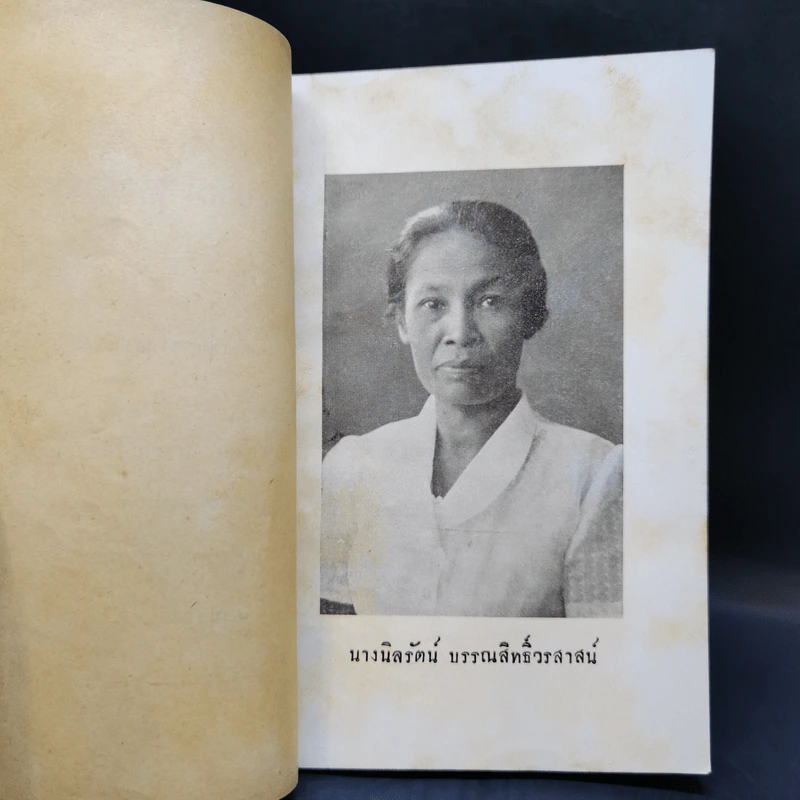 นางนิลรัตน์ บรรณสิทธิ์วรสาสน์